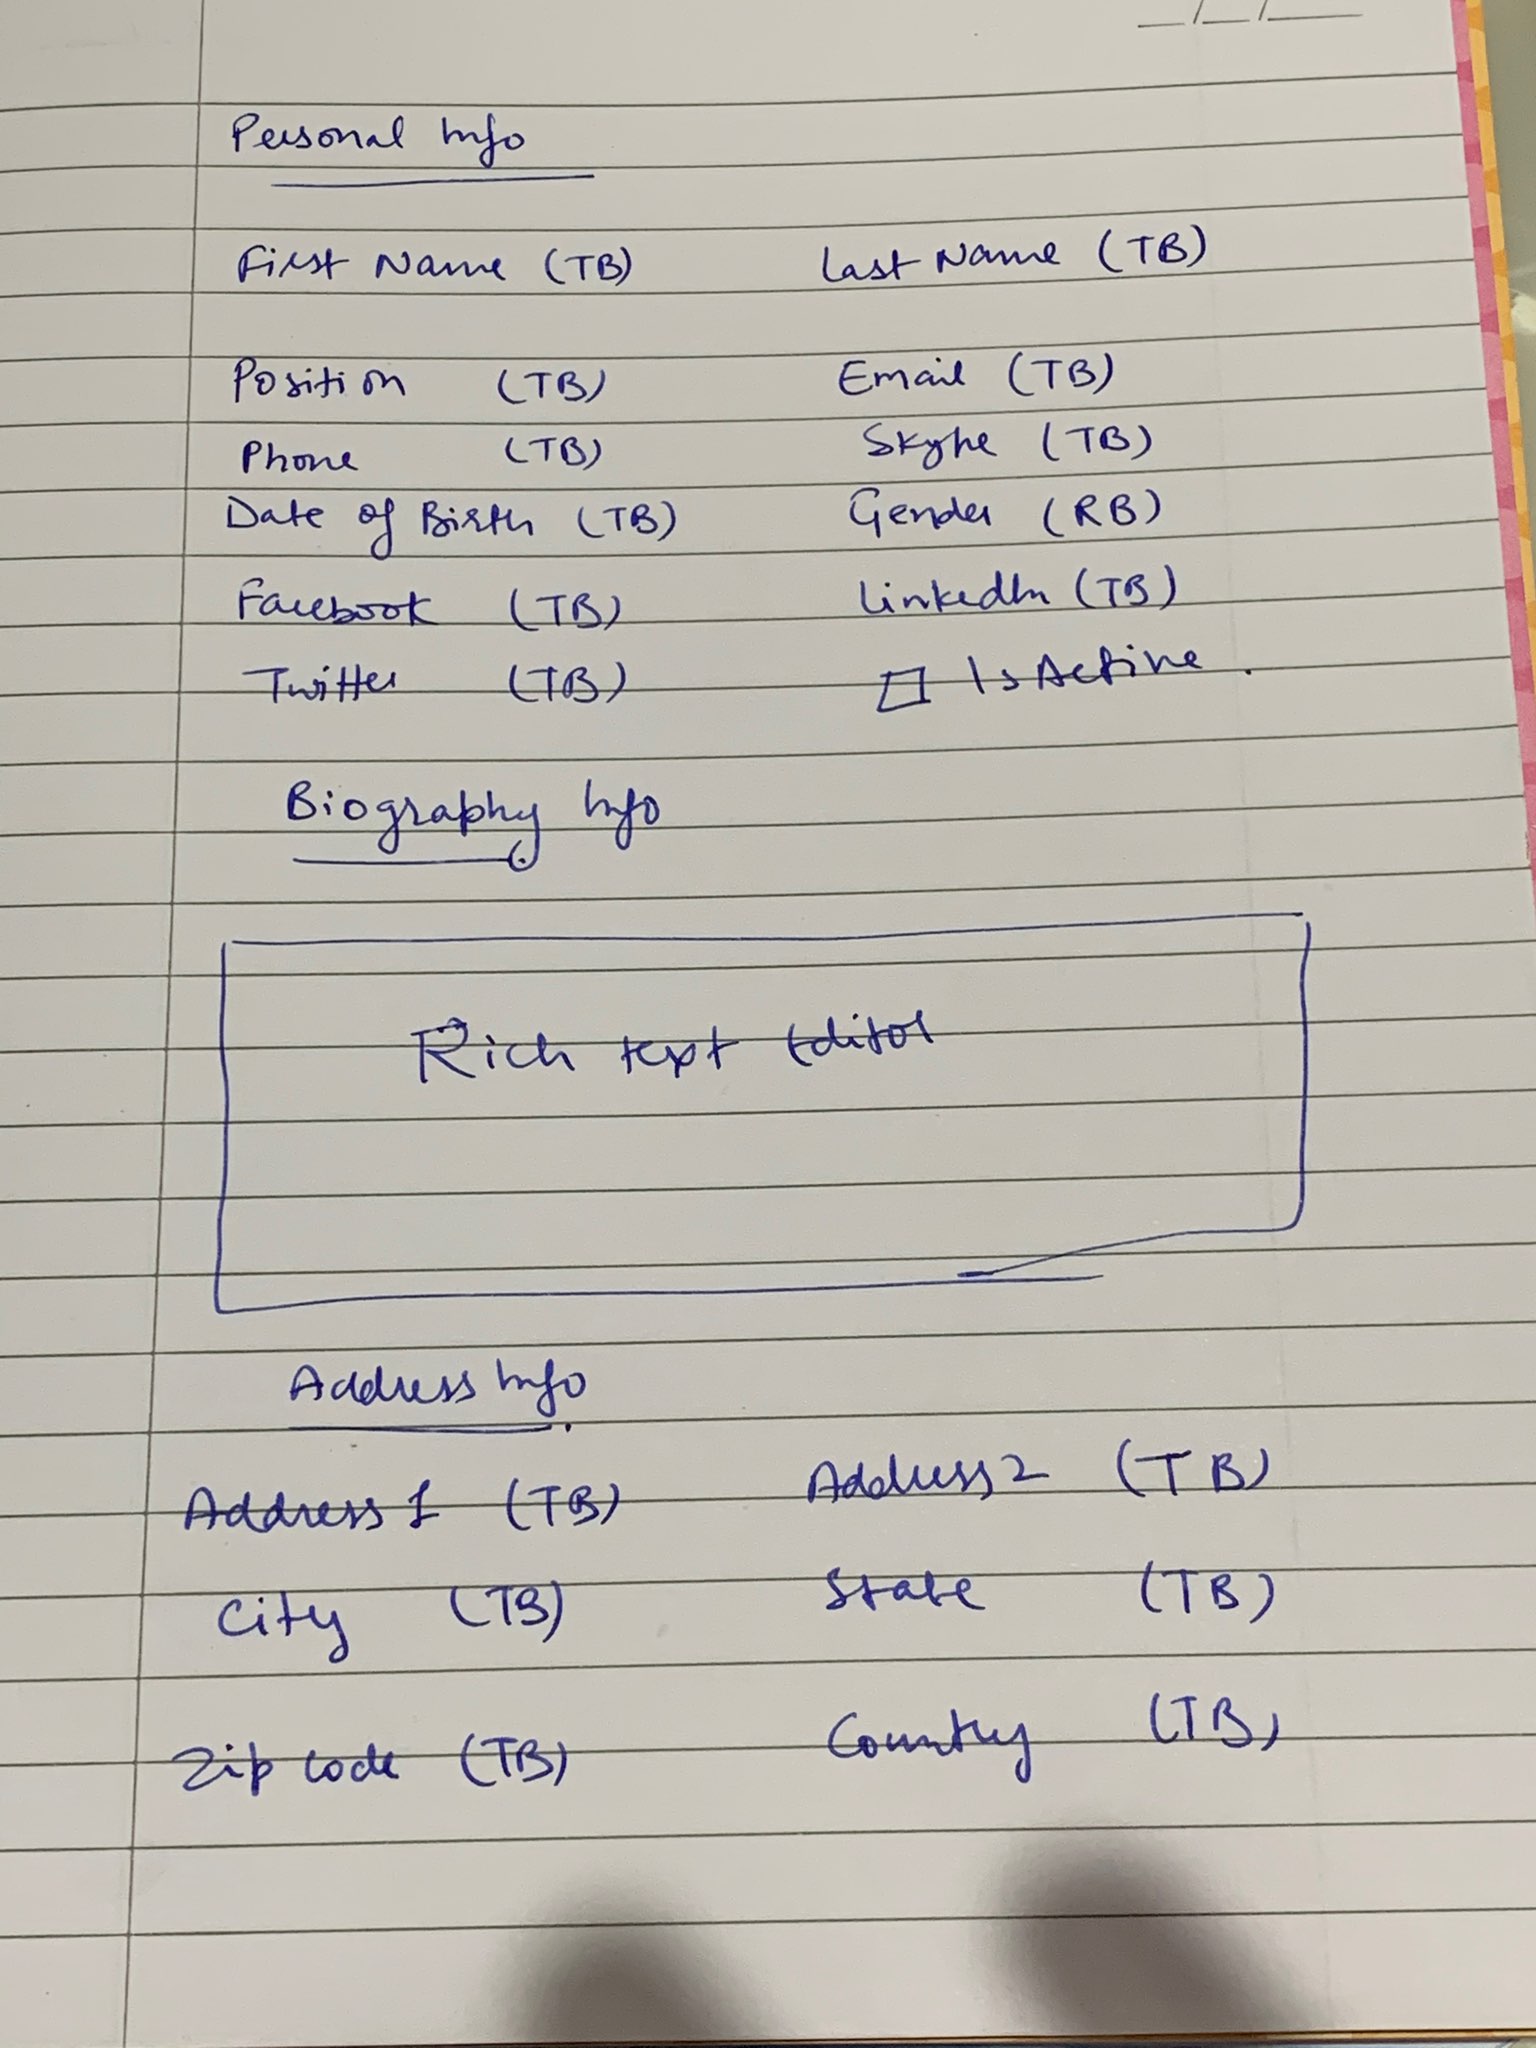 Personal Info
First Name (TB) Last Name (TB)
Position (TB) Email (TB)
Phone (TB) Skype (TB)
Date of Birth (TB) Gender (RB)
Facebook (TB) LinkedIn (TB)
Twitter (TB) Is Active.
Biography Info
Rich text Editor
Address Info
Address 1 (TB) Address 2 (TB)
City (TB) State (TB)
Zip code (TB) Country (TB)